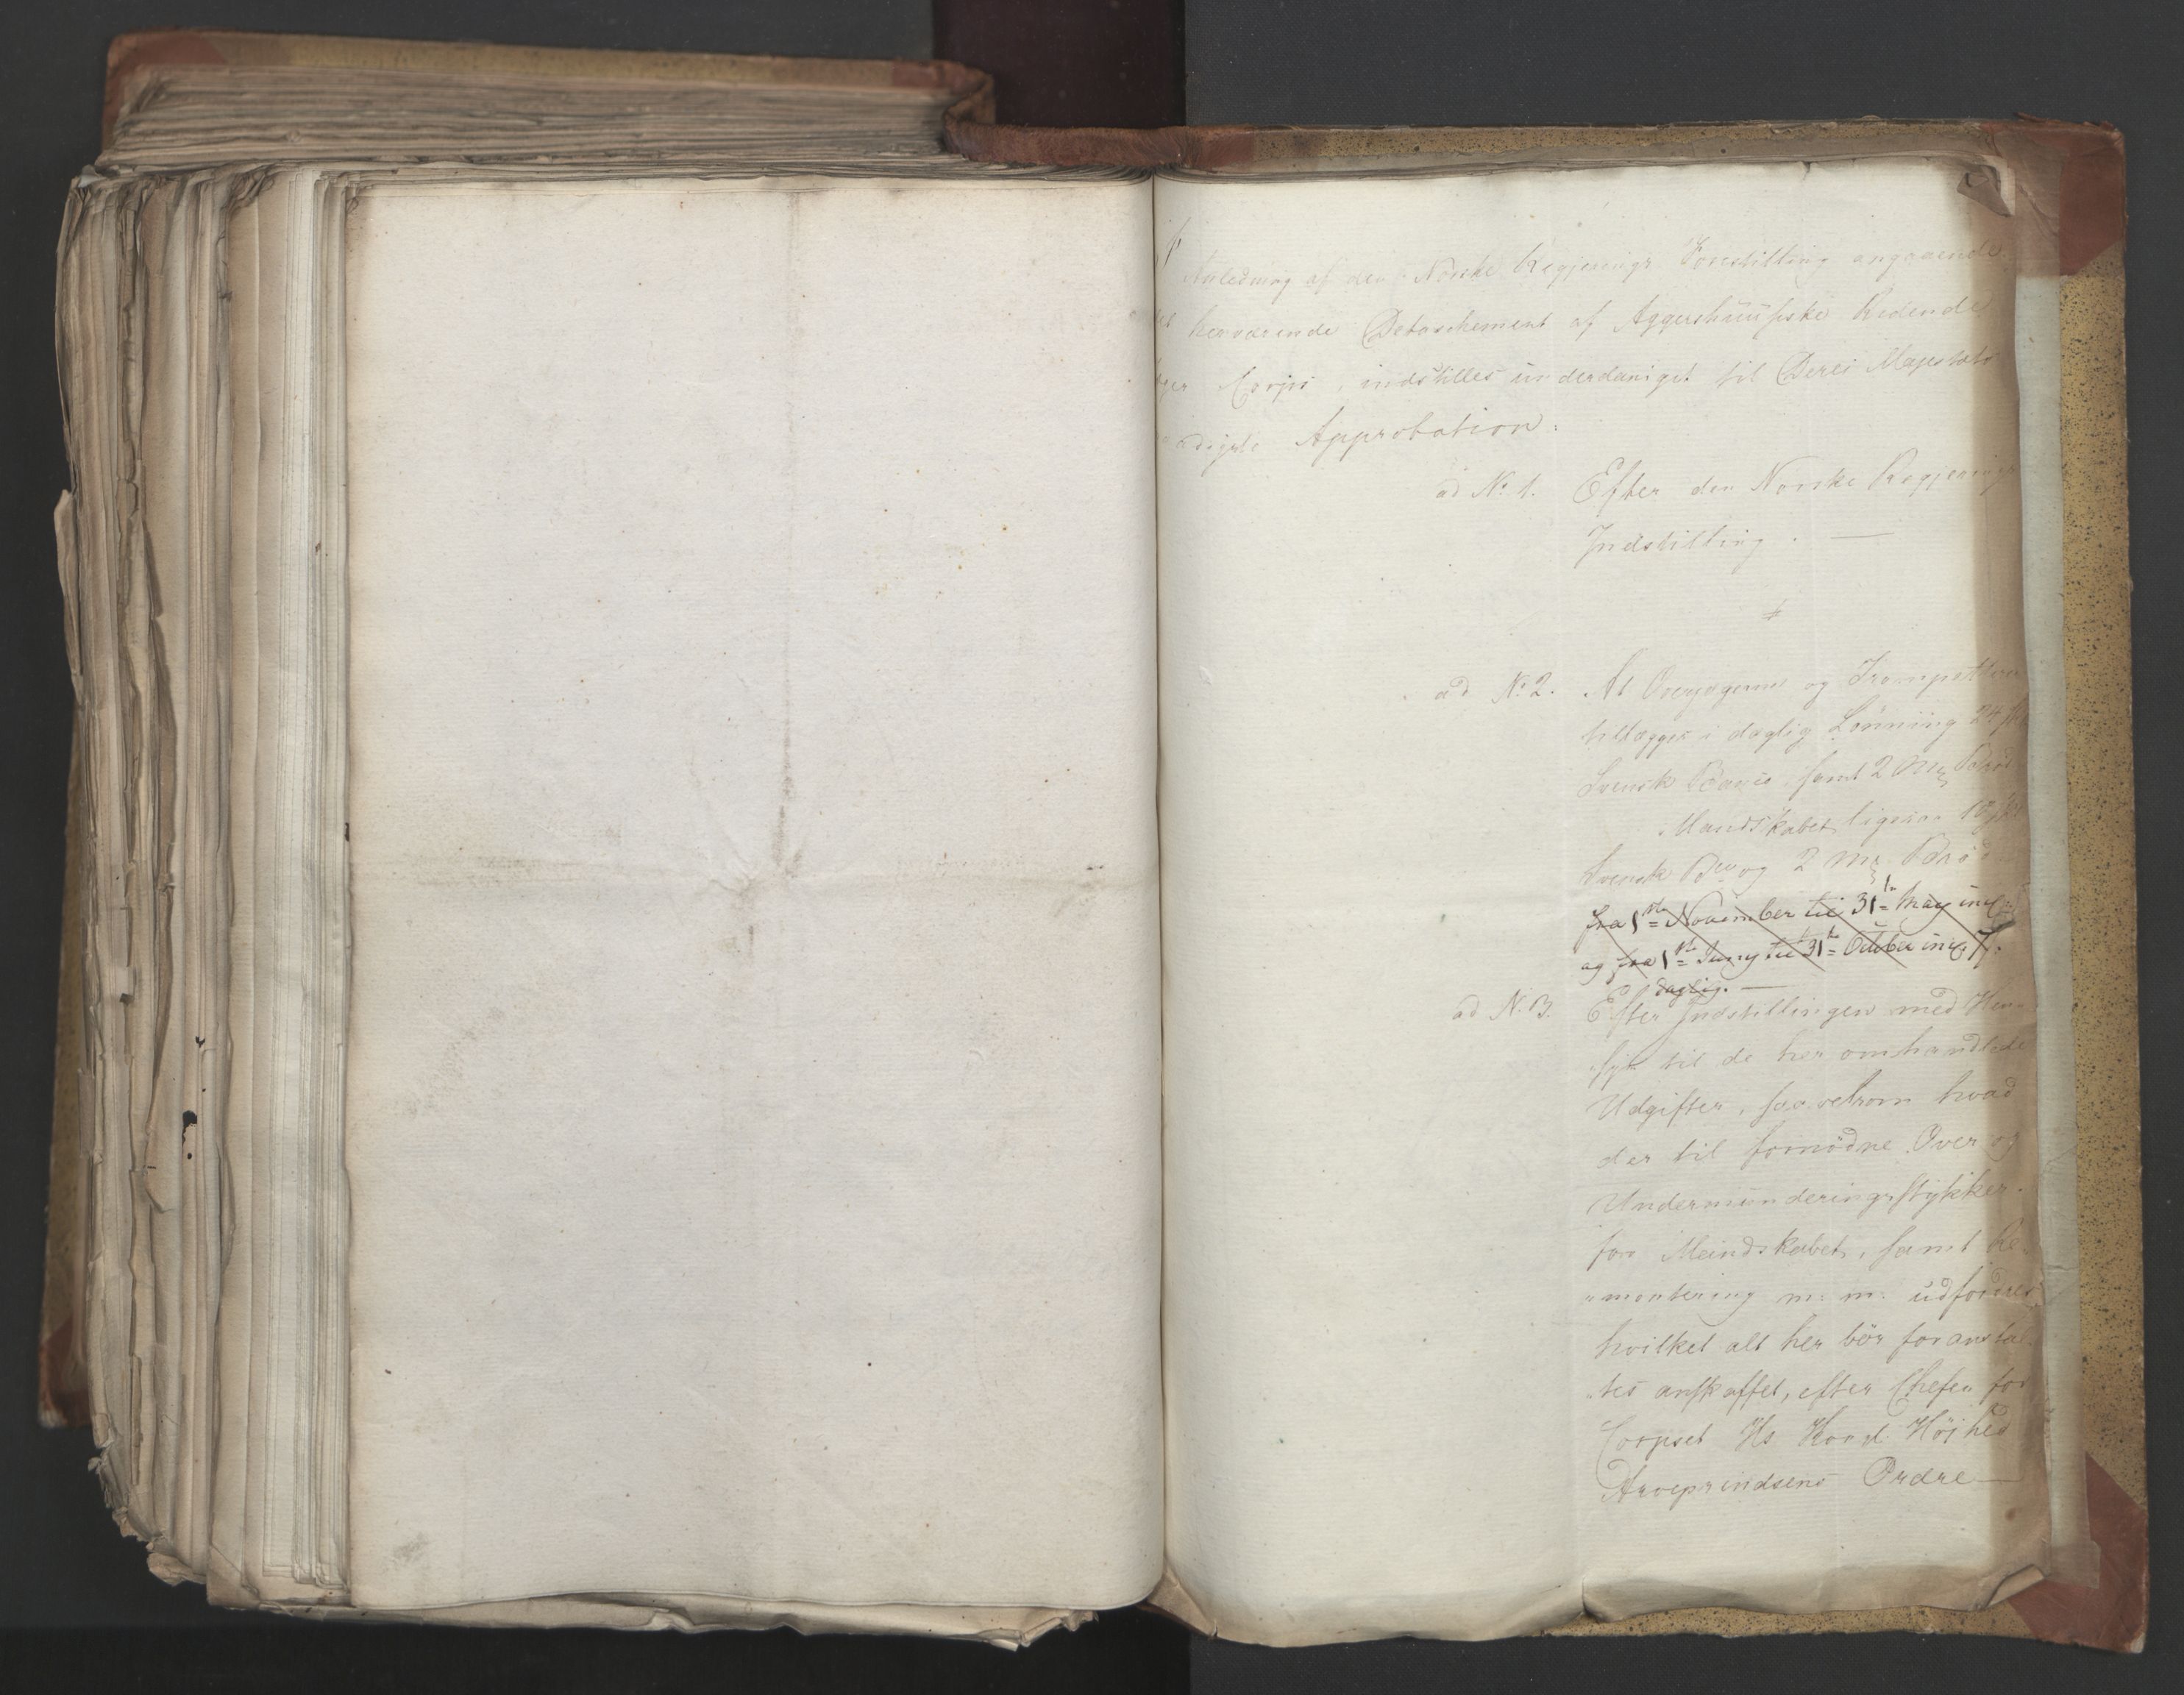 Anledning af den Norske Regjerings Forestilling angaaende
herværende Detaschement af Aggershuusiske Ridende
Corps, indstilles underdanigst til Deres Majestæts
Approbation:
ad No 1. Efter den Norske Regjerings
Indstilling. —
ad No 2. At Overjægerne og Trompetteren
tillægges i daglig Lønning 24
Svensk Banco, samt 2 Mk Brød
Mandskabet ligesaa
Svensk Bco og 2 Mk Brød
fra 1ste November til 31te May incl:
og fra 1ste Juny til 31te October incl. 7.
daglig. —
ad No 3. Efter Indstillingen med Hen-
syn til de her omhandlede
Udgifter, saavelsom hvad
der til fornødne Over og
Undermunderingsstykker
for Mandskabet, samt Re-
„montering m: m: udfordres
hvilket alt her bør foranstal-
„tes anskaffet, efter Chefen for
Corpset Hs Kongl. Høihed
Arveprindsens Ordre —